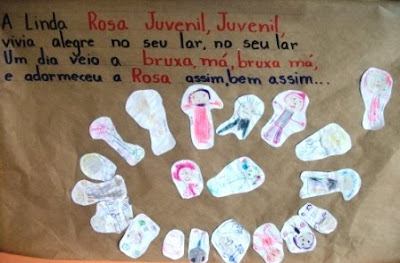 A Linda Rosa Juvenil, Juvenil,
vivia, alegre no seu lar, no seu lar
Um dia veio a bruxa, má, bruxa má,
e adormeceu a Rosa assim, bem assim...